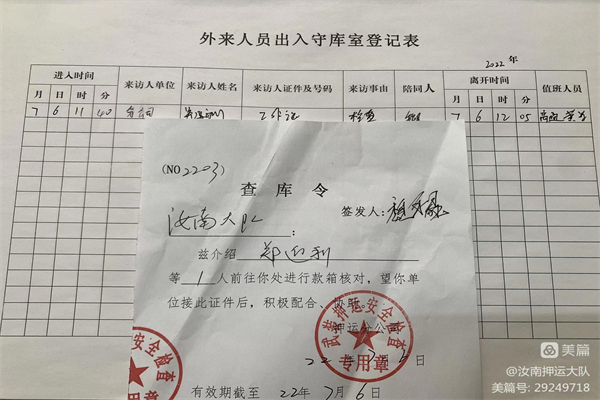 外来人员出入守库室登记表
2022 年
进入时间 来访人单位 来访人姓名 来访人证件及号码 来访事由 陪同人 离开时间 值班人员
月 日 时 分 月 日 时 分
7 6 11 40 分公司 工作证 检查 7 6 12 05
(NO 2203)
查库令
汝南大队: 签发人:
兹介绍 郑迎利
等 1 人前往你处进行款箱核对,望你单
位接此证件后,积极配合、
押运分公司
武装押运安全检查
专用章
22 年 7 月 6 日
安全检查
有效期截至 22年 7月 6日
美篇
@汝南押运大队
美篇号: 29249718